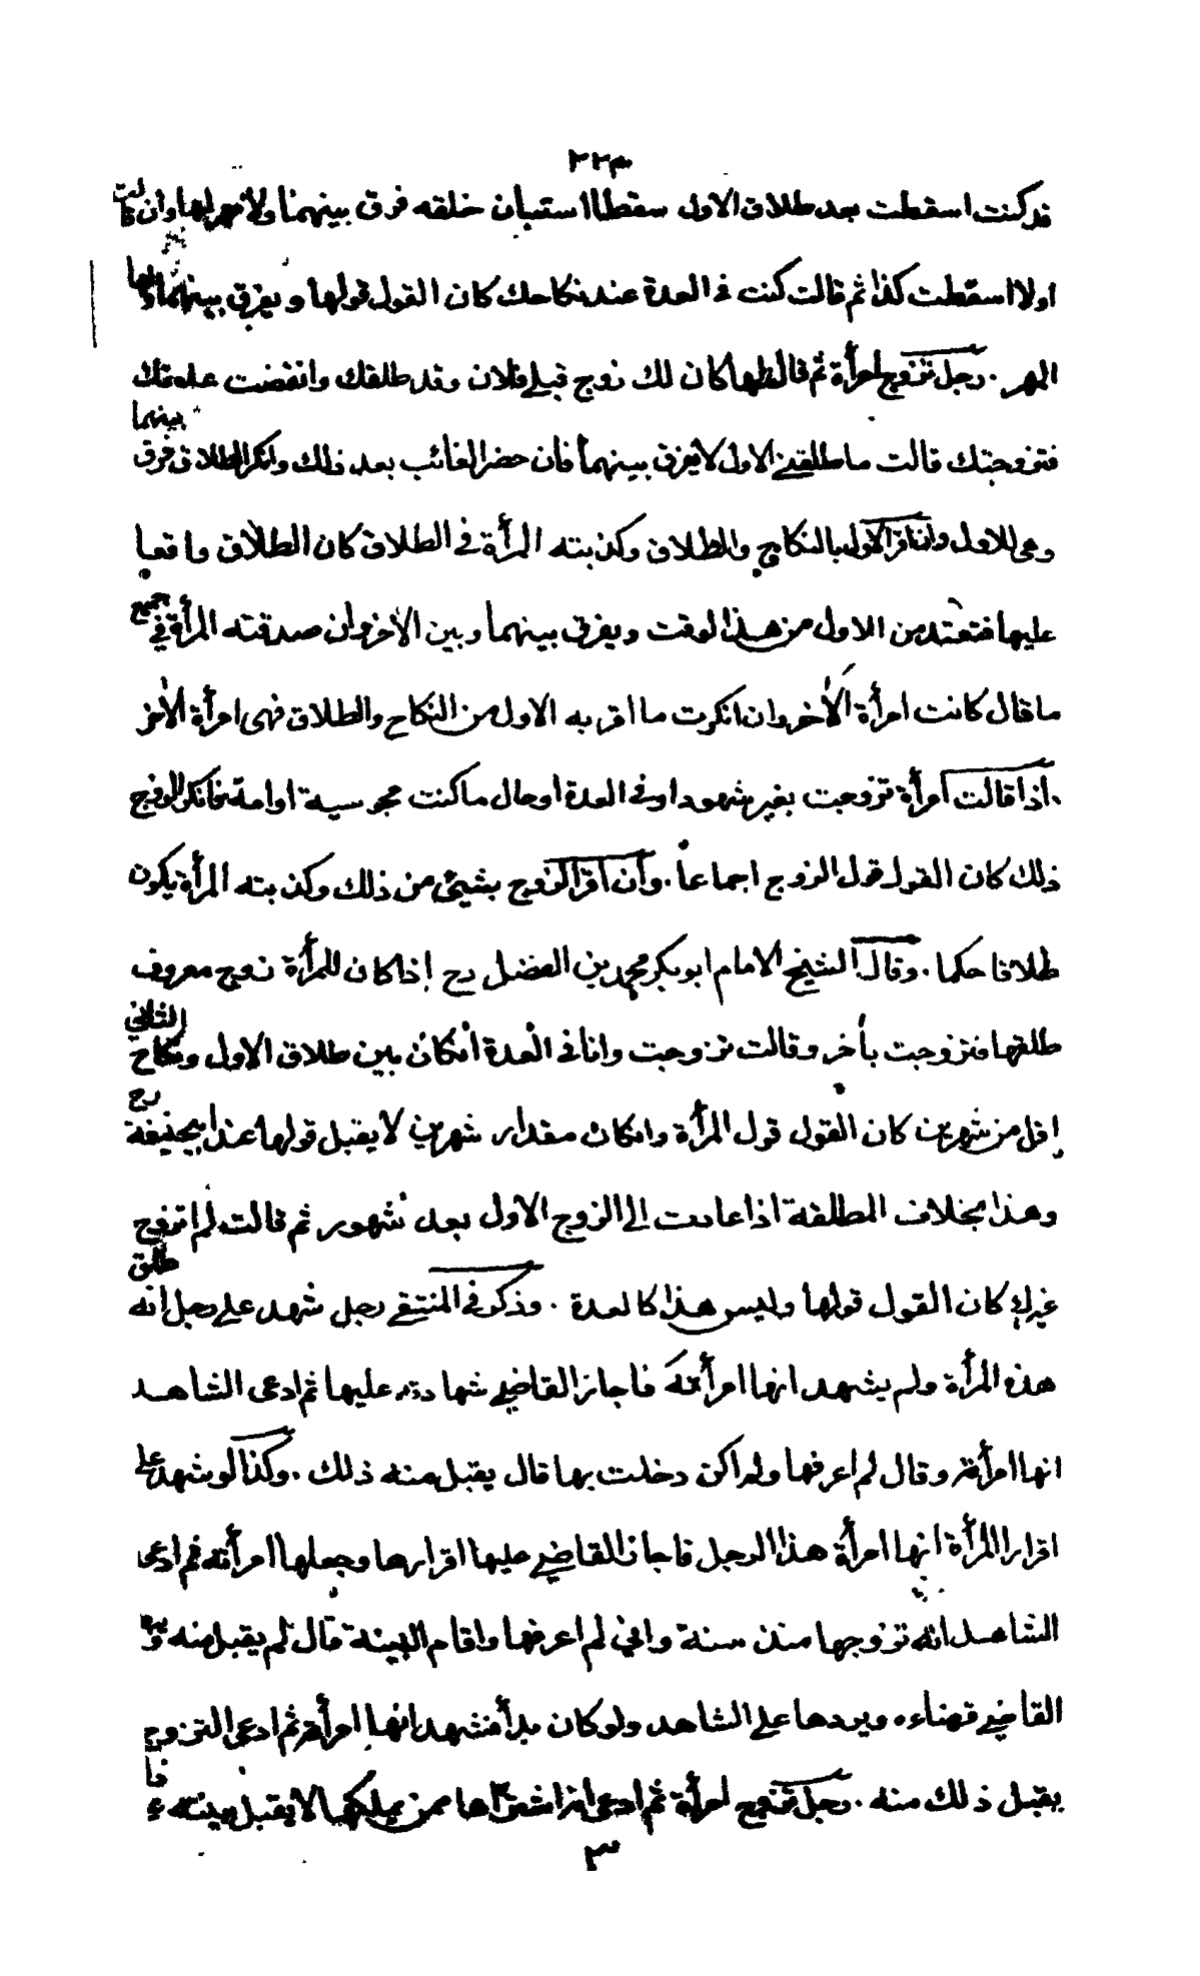 ٢٢٣
قد كنت اسقطت بعد طلاق الاول سقطا استبان خلقه فرق بينهما ولا مهر لها وان قالت
اولا اسقطت كذا ثم قالت كنت في العدة عند نكاحك كان القول قولها ويفرق بينهما ولها
المهر . رجل تزوج امرأة ثم قال لها كان لك زوج قبلي فلان وقد طلقك وانقضت عدتك
فتزوجتك قالت ما طلقني الاول لا يفرق بينهما فان حضر الغائب بعد ذلك وانكر الطلاق فرق بينهما
وهي للاول وان اقر الاول بالنكاح والطلاق وكذبته المرأة في الطلاق كان الطلاق واقعا
عليها فتعتد من الاول من هذا الوقت ويفرق بينهما وبين الأخر وان صدقته المرأة في جميع
ما قال كانت امرأة الأخر وان انكرت ما اقر به الاول من النكاح والطلاق فهي امرأة الأخر
. اذا قالت امرأة تزوجت بغير شهود او في العدة او حال ما كنت مجوسية او امة فانكر الزوج
ذلك كان القول قول الزوج اجماعا . وان اقر الزوج بشيئ من ذلك وكذبته المرأة يكون
طلاقا حكما . وقال الشيخ الامام ابو بكر محمد بن الفضل رح إذا كان للمرأة زوج معروف
طلقها فتزوجت بأخر وقالت تزوجت وانا في العدة ان كان بين طلاق الاول ونكاح الثاني
إقل من شهرين كان القول قول المرأة وان كان مقدار شهرين لا يقبل قولها عند ابيحنيفة رح
وهذا بخلاف المطلقة اذا عادت الى الزوج الاول بعد شهور ثم قالت لم اتزوج
غيرك كان القول قولها وليس هذا كالعدة . وذكر في المنتقى رجل شهد على رجل انه طلق
هذه المرأة ولم يشهد انها امرأته فاجاز القاضي شهادته عليها ثم ادعى الشاهد
انها امرأته وقال لم اعرفها ولم اكن دخلت بها قال يقبل منه ذلك . وكذا لو شهد على
اقرار المرأة انها امرأة هذا الرجل فاجاز القاضي عليها اقرارها وجعلها امرأته ثم ادعى
الشاهد انه تزوجها منذ سنة واني لم اعرفها واقام البينة قال لم يقبل منه
القاضي قضاءه ويردها على الشاهد ولو كان بدأ فشهد انها امرأته ثم ادعى التزوج
يقبل ذلك منه . رجل تزوج امرأة ثم ادعى انه اشتراها ممن يملكها لا يقبل بينته